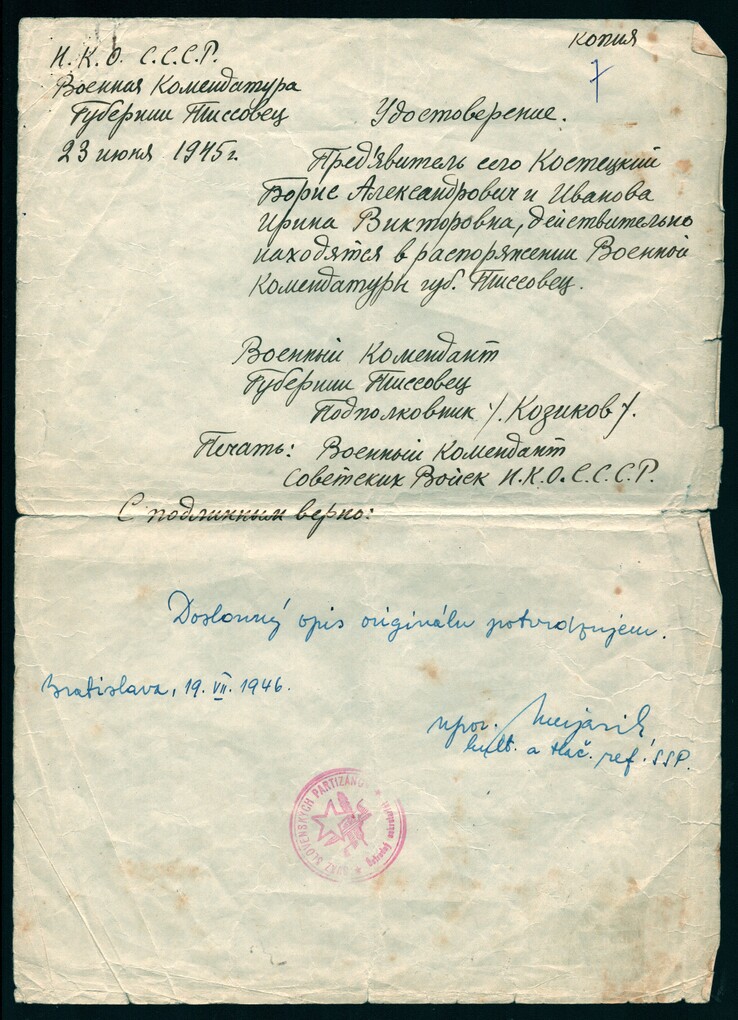 Копия
7
Н. К. О. С.С.С.Р.
Военная Комендатура
Губернии Тиссовец
23 июня 1945 г.
Удостоверение.
Пред'явитель сего Костецкий
Борис Александрович и Иванова
Ирина Викторовна, действительно
находятся в распоряжении Военной
Комендатуры губ. Тиссовец.
Военный Комендант
Губернии Тиссовец
Подполковник /. Козиков /.
Печать: Военный Комендант
Советских Войск Н.К.О. С.С.С.Р.
С подлинным верно:
Doslovný opis originálu potvrdzujem.
Bratislava, 19. VII. 1946.
npor.
kult. a tlač. ref. SSP.
SVÄZ SLOVENSKÝCH PARTIZÁNOV